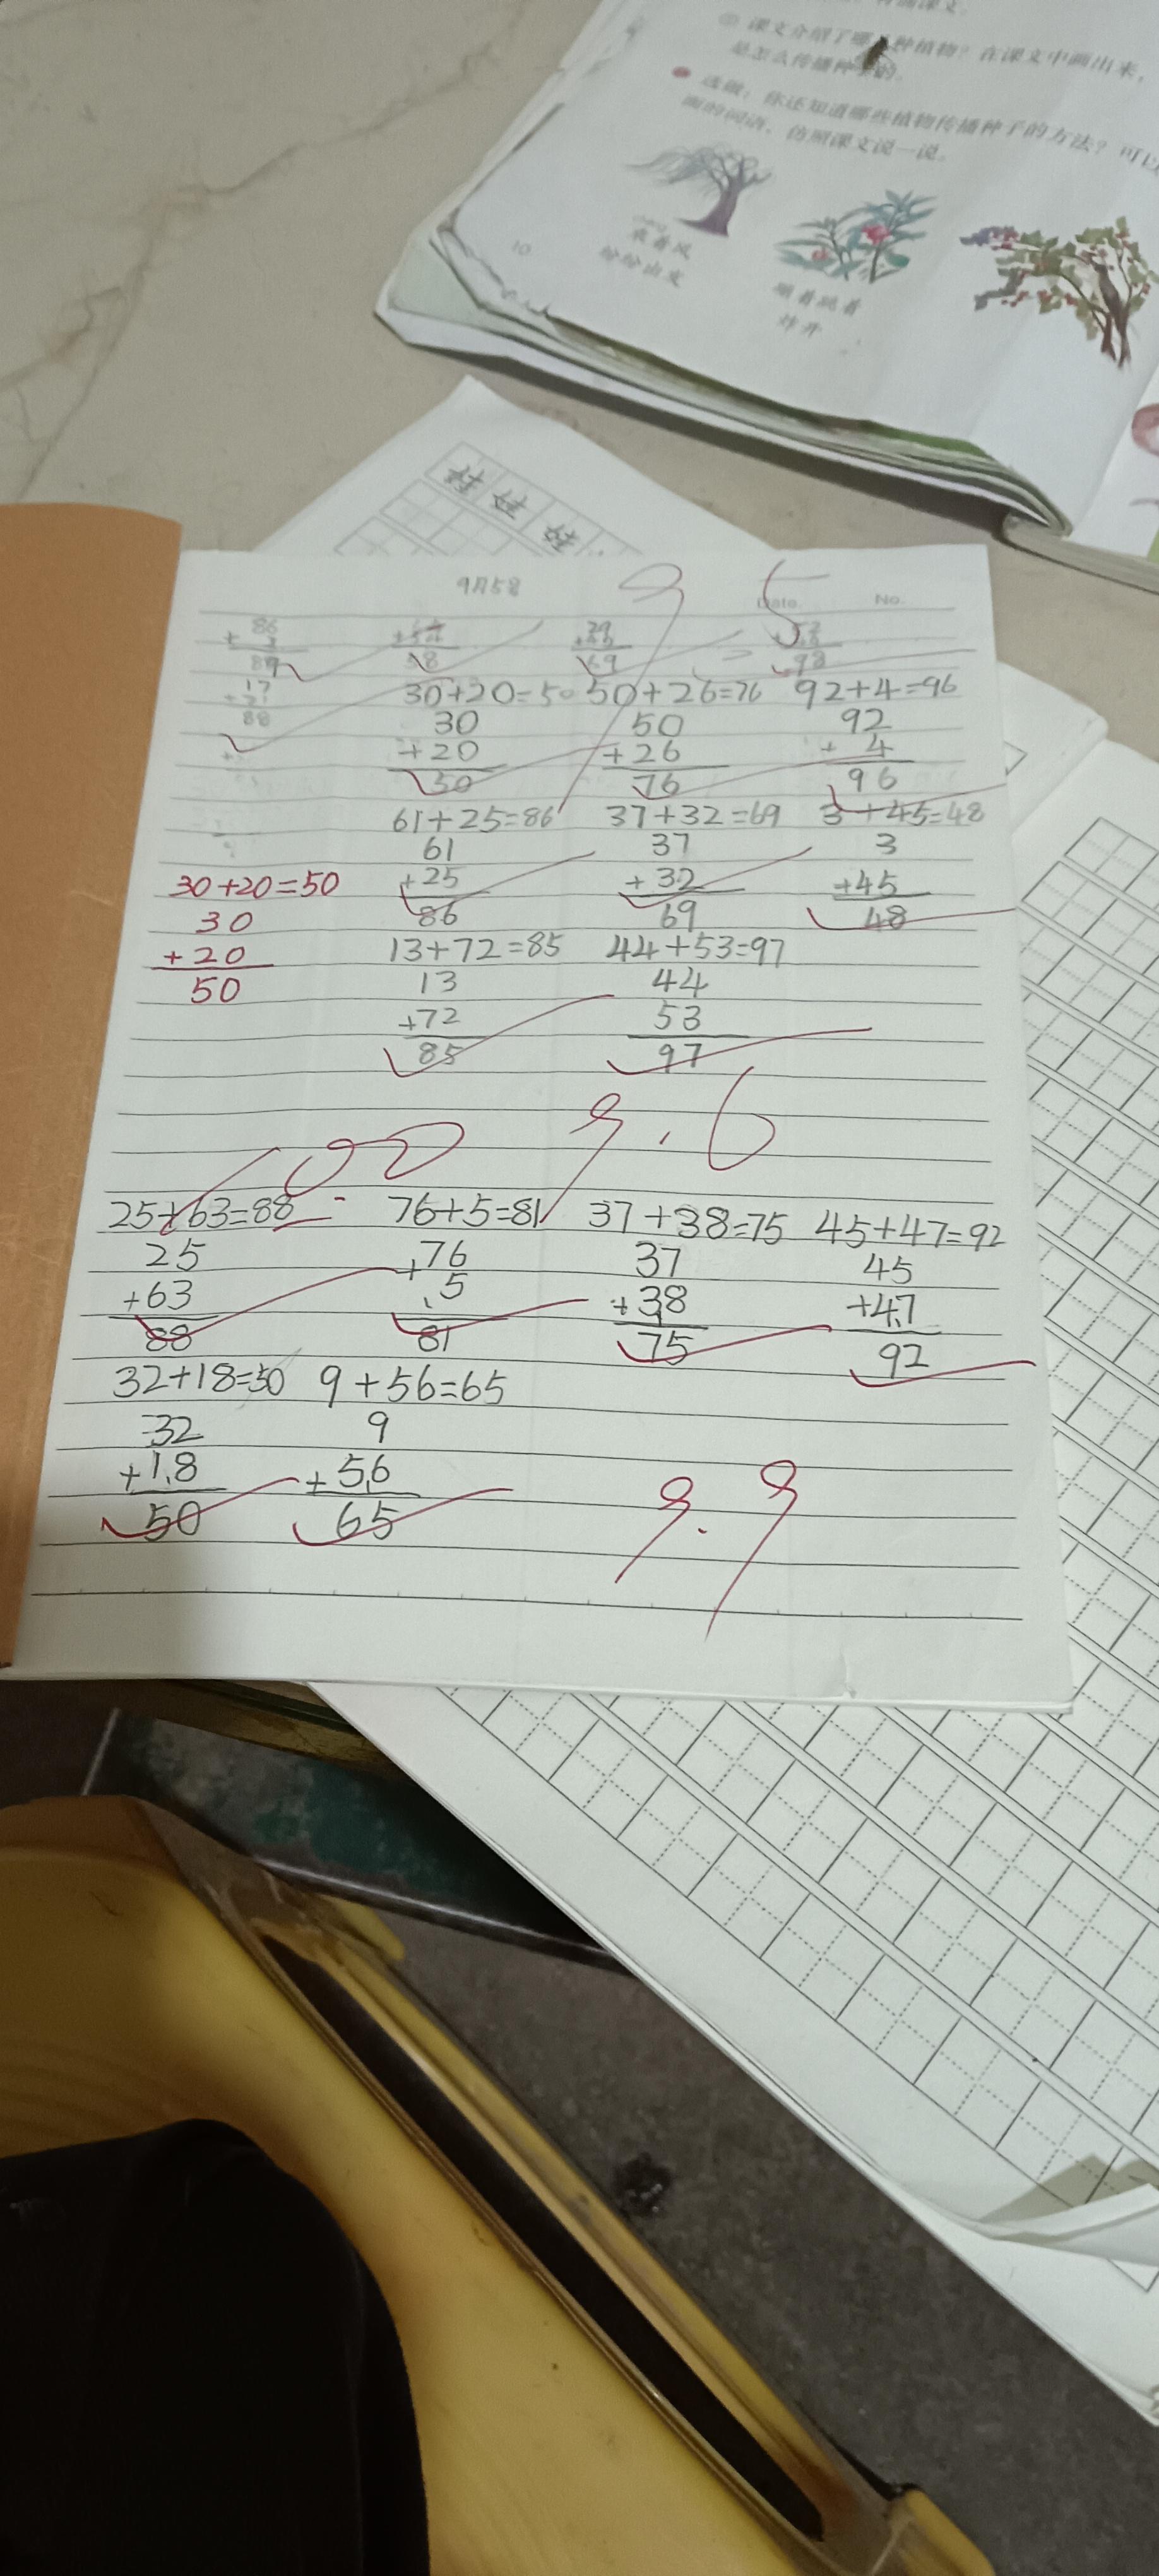 课文介绍了哪几种植物？在课文中画出来，
是怎么传播种子的。
选做：你还知道哪些植物传播种子的方法？可以
面的词语，仿照课文说一说。
乘着风
纷纷出发
蹦着跳着
炸开
10
娃 娃 娃
9月5日 9 5
Date. No.
86
89 69 98
17
88
30+20=50 50+26=76 92+4=96
30 50 92
+20 +26 + 4
50 76 96
61+25=86 37+32=69 3+45=48
61 37 3
30+20=50 +25 +32 +45
30 86 69 48
+20 13+72=85 44+53=97
50 13 44
+72 53
85 97
9.6
25+63=88 76+5=81 37+38=75 45+47=92
25 76 37 45
+63 + 5 +38 +47
88 81 75 92
32+18=50 9+56=65
32 9
+18 +56
50 65
9.9